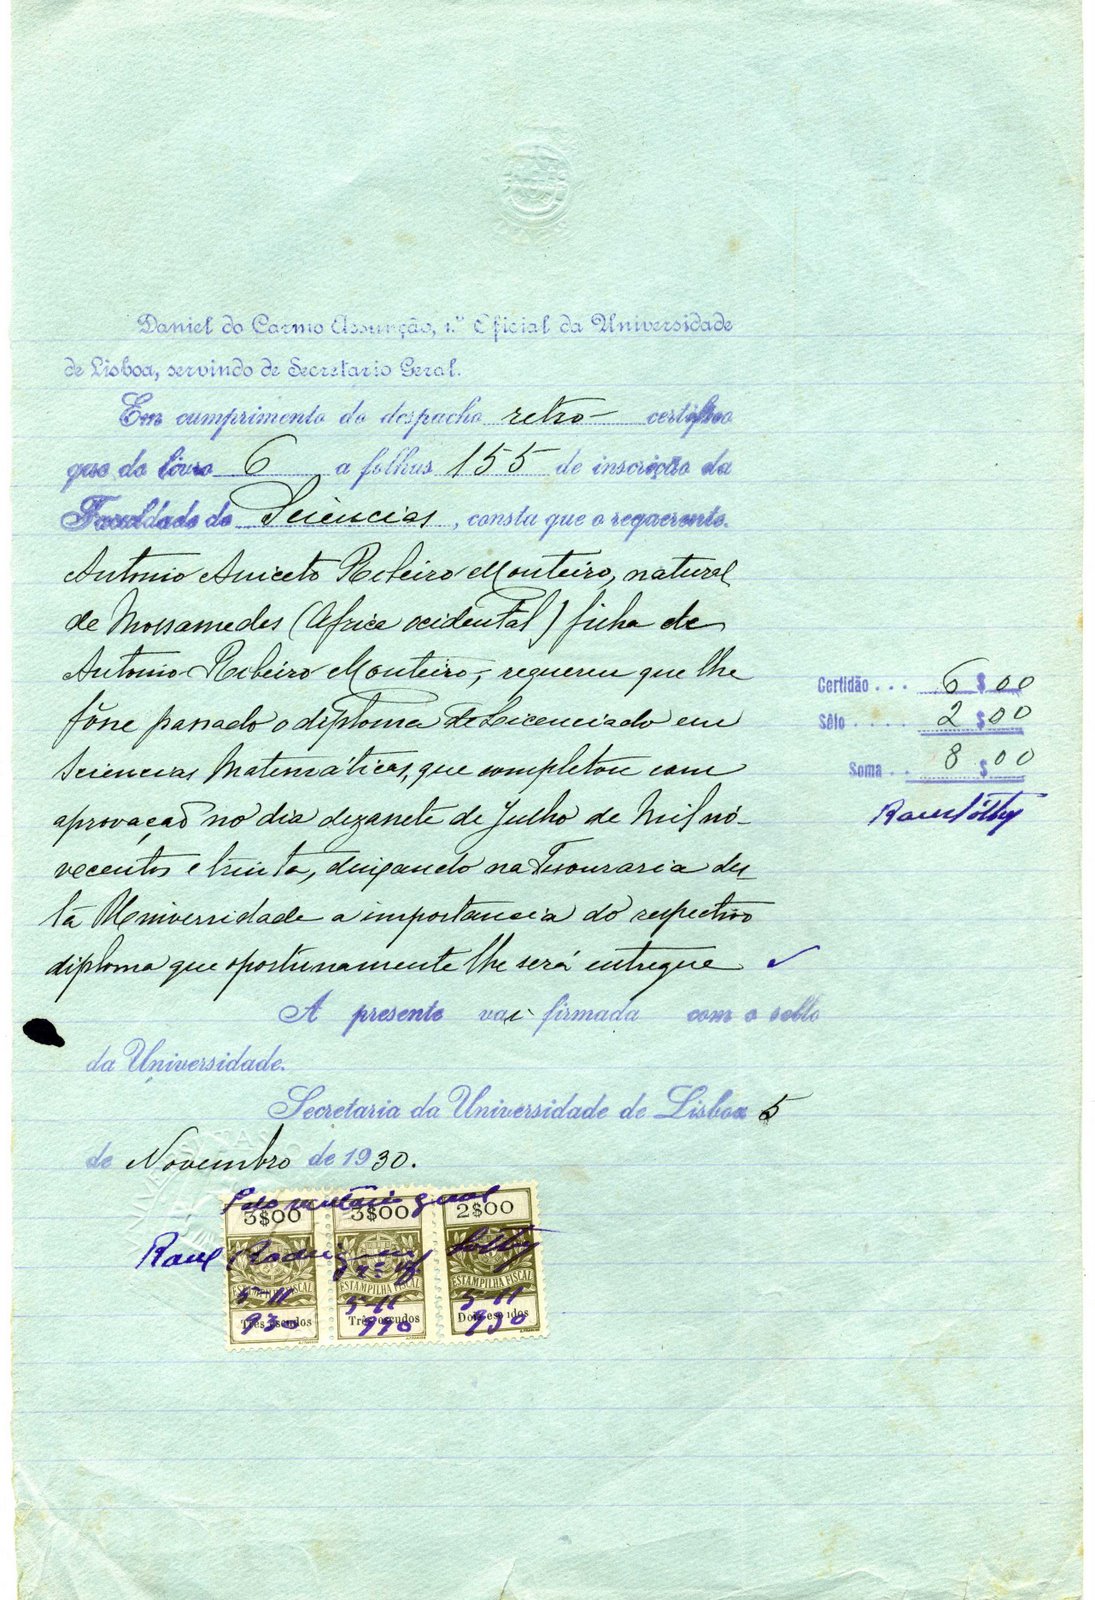 Daniel do Carmo Assunção, 1.º Oficial da Universidade
de Lisboa, servindo de Secretario Geral.
Em cumprimento do despacho retro certifico
que do livro 6 a folhas 155 de inscrição da
Faculdade de Sciencias, consta que o requerente.
Antonio Aniceto Ribeiro Monteiro, natural
de Mossamedes (Africa ocidental) filho de
Antonio Ribeiro Monteiro, requereu que lhe
fôsse passado o diploma de Licenciado em
Sciencias Matemáticas, que completou com
aprovação no dia dezassete de Julho de Mil nó-
vecentos e trinta, deixando na Tesouraria des
ta Universidade a importancia do respectivo
diploma que oportunamente lhe será entregue
Certidão . . . 6 $ 00
Sêlo . . . . 2 $ 00
Soma . . 8 $ 00
A presente vai firmada com o sello
da Universidade.
Secretaria da Universidade de Lisboa 5
de Novembro de 1930.
Pelo secretário geral
3$00 3$00 2$00
Raul Rodrigues
ESTAMPILHA FISCAL ESTAMPILHA FISCAL ESTAMPILHA FISCAL
5-11 5-11 5-11
930 930 930
Três escudos Três escudos Dois escudos